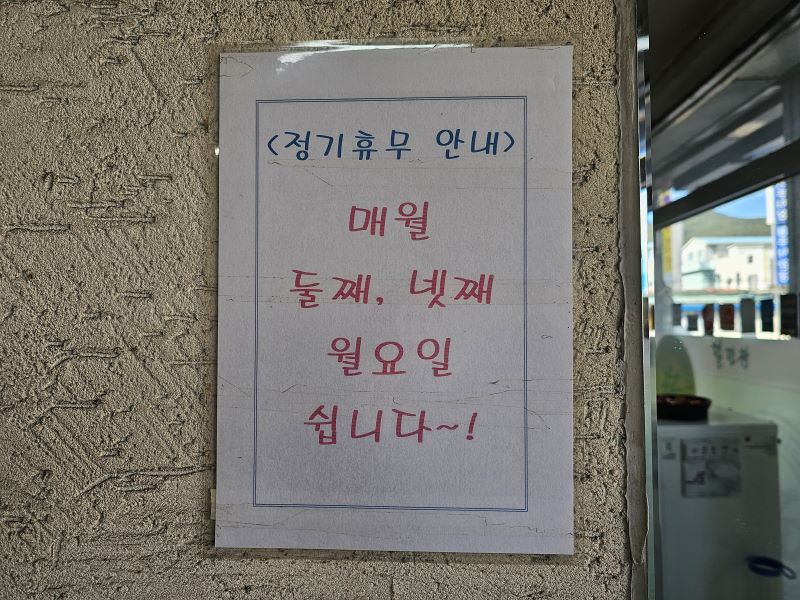 <정기휴무 안내>
매월
둘째, 넷째
월요일
쉽니다~!